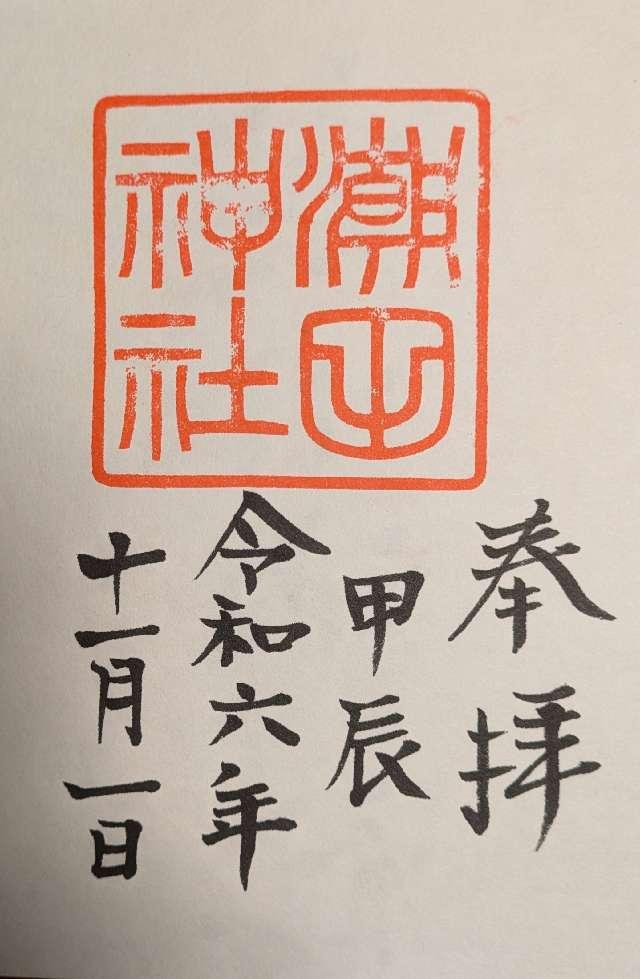 潮田
神社
奉拝
甲辰
令和六年
十一月一日